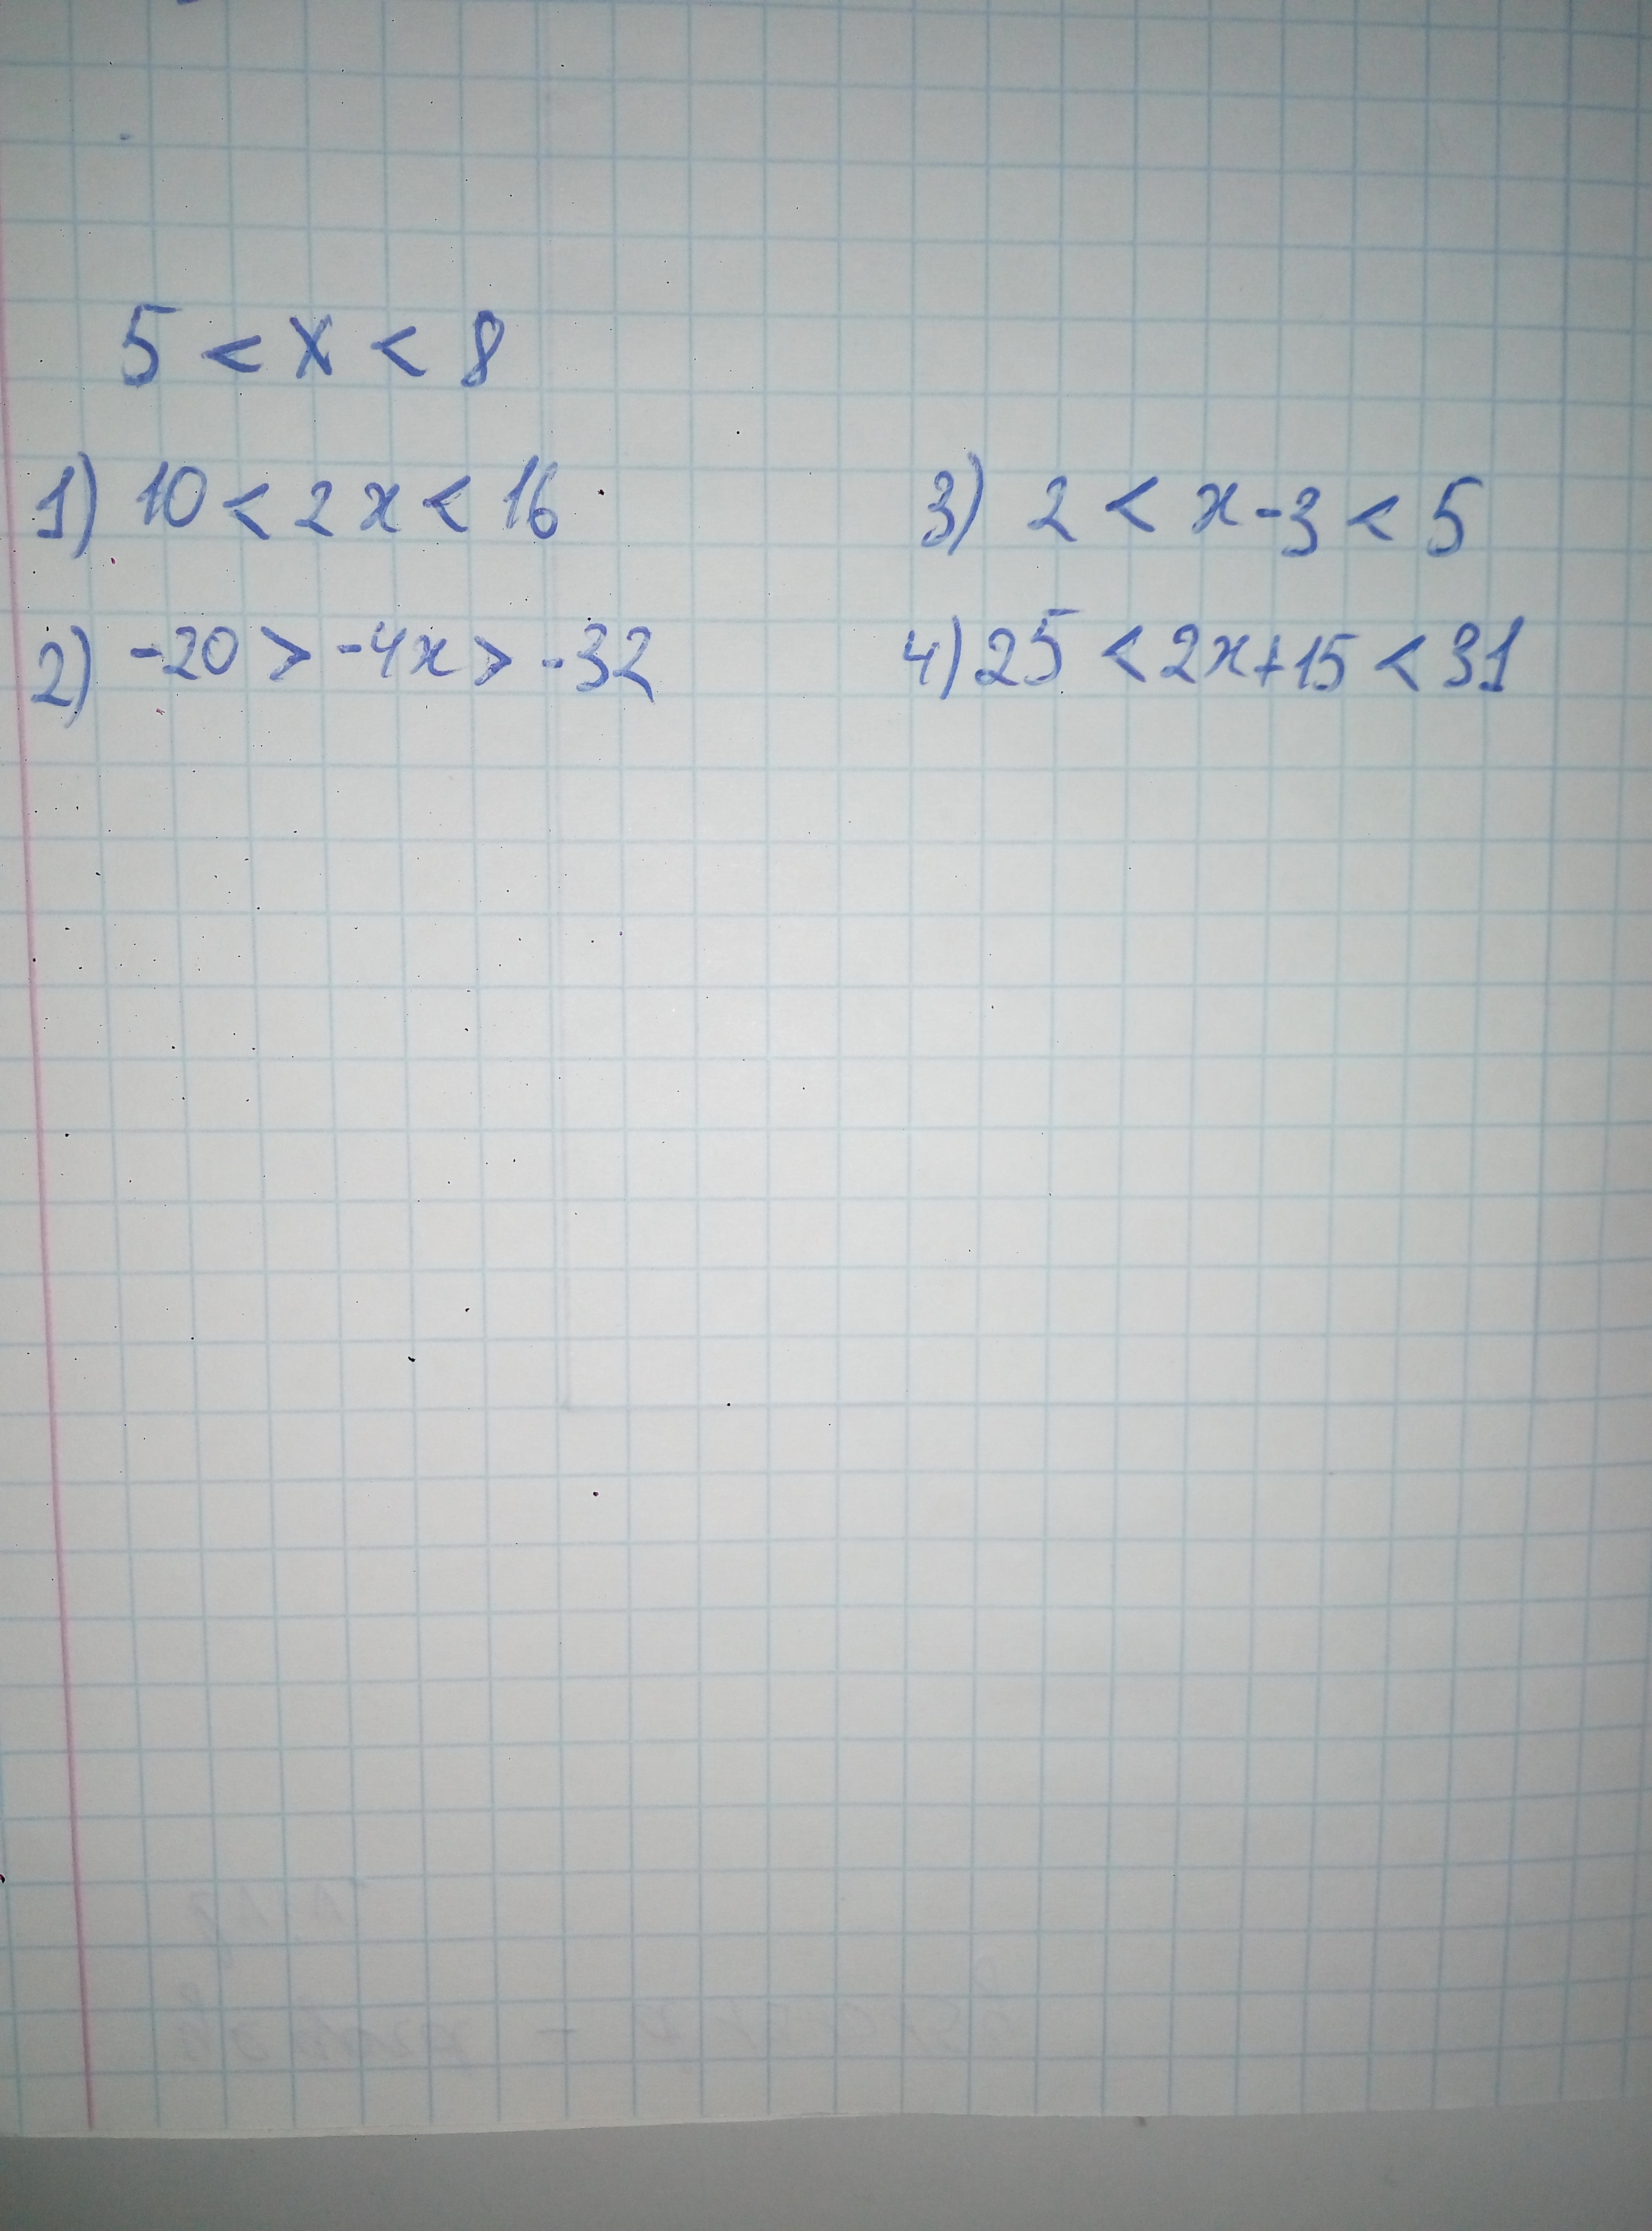 5 < x < 8
1) 10 < 2x < 16
2) -20 > -4x > -32
3) 2 < x - 3 < 5
4) 25 < 2x + 15 < 31